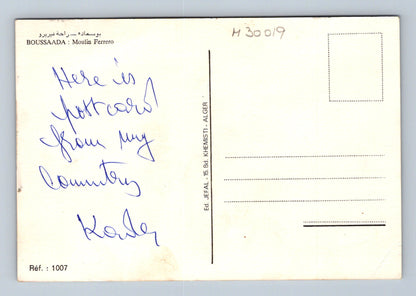 بوسعادة — راحة فيريرو
BOUSSAADA : Moulin Ferrero
M 30.019
Here is
postcard
from my
Country
Kader
Ed. JEFAL - 15 Bd. KHEMISTI - ALGER
Réf. : 1007